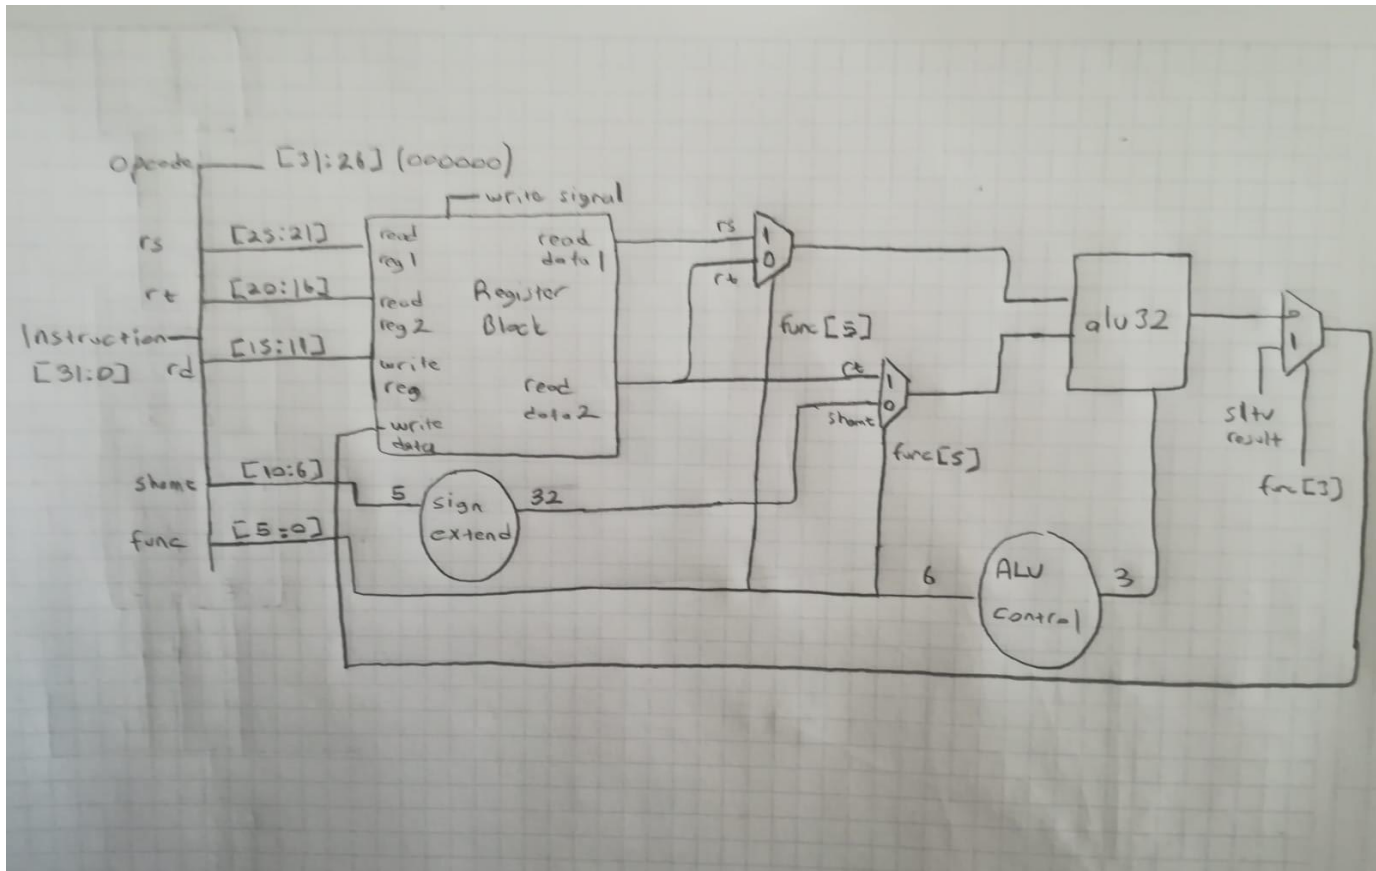 Opcode
[31:26] (000000)
write signal
rs
[25:21]
rt
[20:16]
Instruction
[31:0]
rd
[15:11]
shamt
[10:6]
func
[5:0]
read
reg1
read
reg2
write
reg
write
data
Register
Block
read
data1
read
data2
5
sign
extend
32
rs
rt
1
0
func[5]
rt
shamt
1
0
func[5]
alu32
0
1
sltu
result
func[3]
6
ALU
control
3